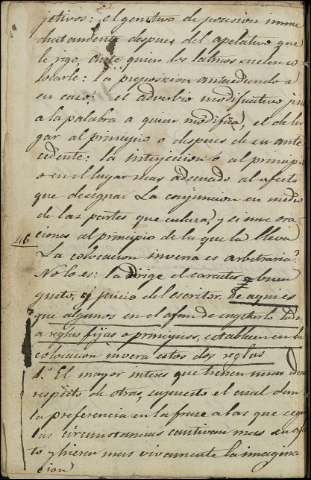 jetivos: el genitivo de posesion inme
diatamente despues del apelativo que
le rige, ante quien los latinos suelen co
locarle: la preposicion antecediendo a
su caso: el adverbio modificativo jun
a la palabra a quien modifica, el de lu
gar al principio o despues de su ante
cedente: la interjeccion o al principio
o en el lugar mas adecuado al afecto
que designa. La conjuncion en medio
de las partes que enlaza, y si une ora
ciones al principio de la que la lleva
46 La colocacion inversa es arbitraria?
No lo es: la dirige el caracter, buen
gusto, y juicio del escritor. De aqui es
que algunos en el afan de sujetarlo todo
a reglas fijas o principios, establecen en la
colocacion inversa estas dos reglas
1.ª El mayor interes que tienen unas ideas
respecto de otras supuesto el cual den
la preferencia en la frase a las que segun
las circunstancias cautivan mas su afec
to y hieren mas vivamente la imagina
cion